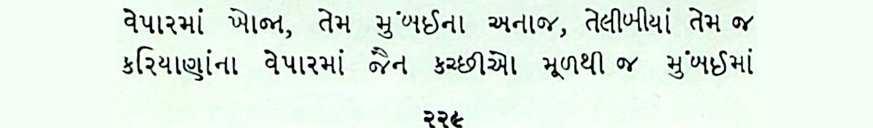 વેપારમાં ખોજા, તેમ મુંબઈના અનાજ, તેલીબીયાં તેમ જ
કરિયાણાંના વેપારમાં જૈન કચ્છીઓ મૂળથી જ મુંબઈમાં
૨૨૯